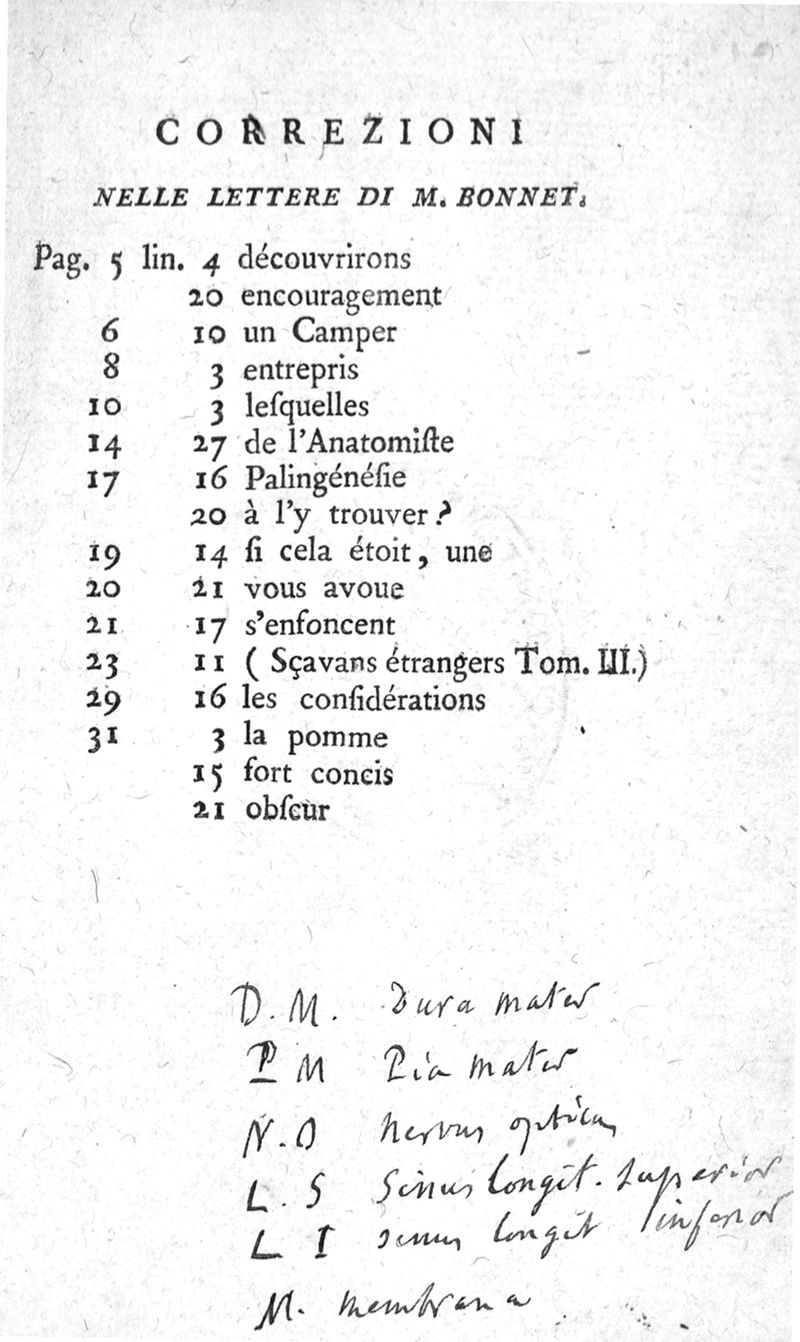 CORREZIONI
NELLE LETTERE DI M. BONNET.
Pag. 5 lin. 4 découvrirons
20 encouragement
6 10 un Camper
8 3 entrepris
10 3 leſquelles
14 27 de l'Anatomiſte
17 16 Palingénéſie
20 à l'y trouver?
19 14 ſi cela étoit, une
20 21 vous avoue
21 17 s'enfoncent
23 11 ( Sçavans étrangers Tom. III.)
29 16 les conſidérations
31 3 la pomme
15 fort concis
21 obſcur
D. M. Dura mater
P M Pia mater
N. O nervus opticus
L. S Sinus longit. superior
L I sinus longit inferior
M. membrana